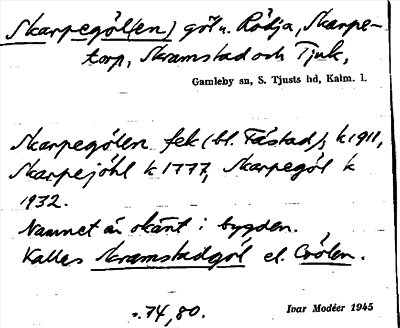 Skarpegöl(en) göl u. Rödja, Skarpe-
torp, Skramstad och Tjuk,
Gamleby sn, S. Tjusts hd, Kalm. l.
Skarpegölen fek (bl. Fästad), k 1911,
Skarpejöhl k 1777, Skarpegöl k
1932.
Namnet är okänt i bygden.
Kalles Skramstadgöl el. Gölen.
s. 74, 80.
Ivar Modéer 1945